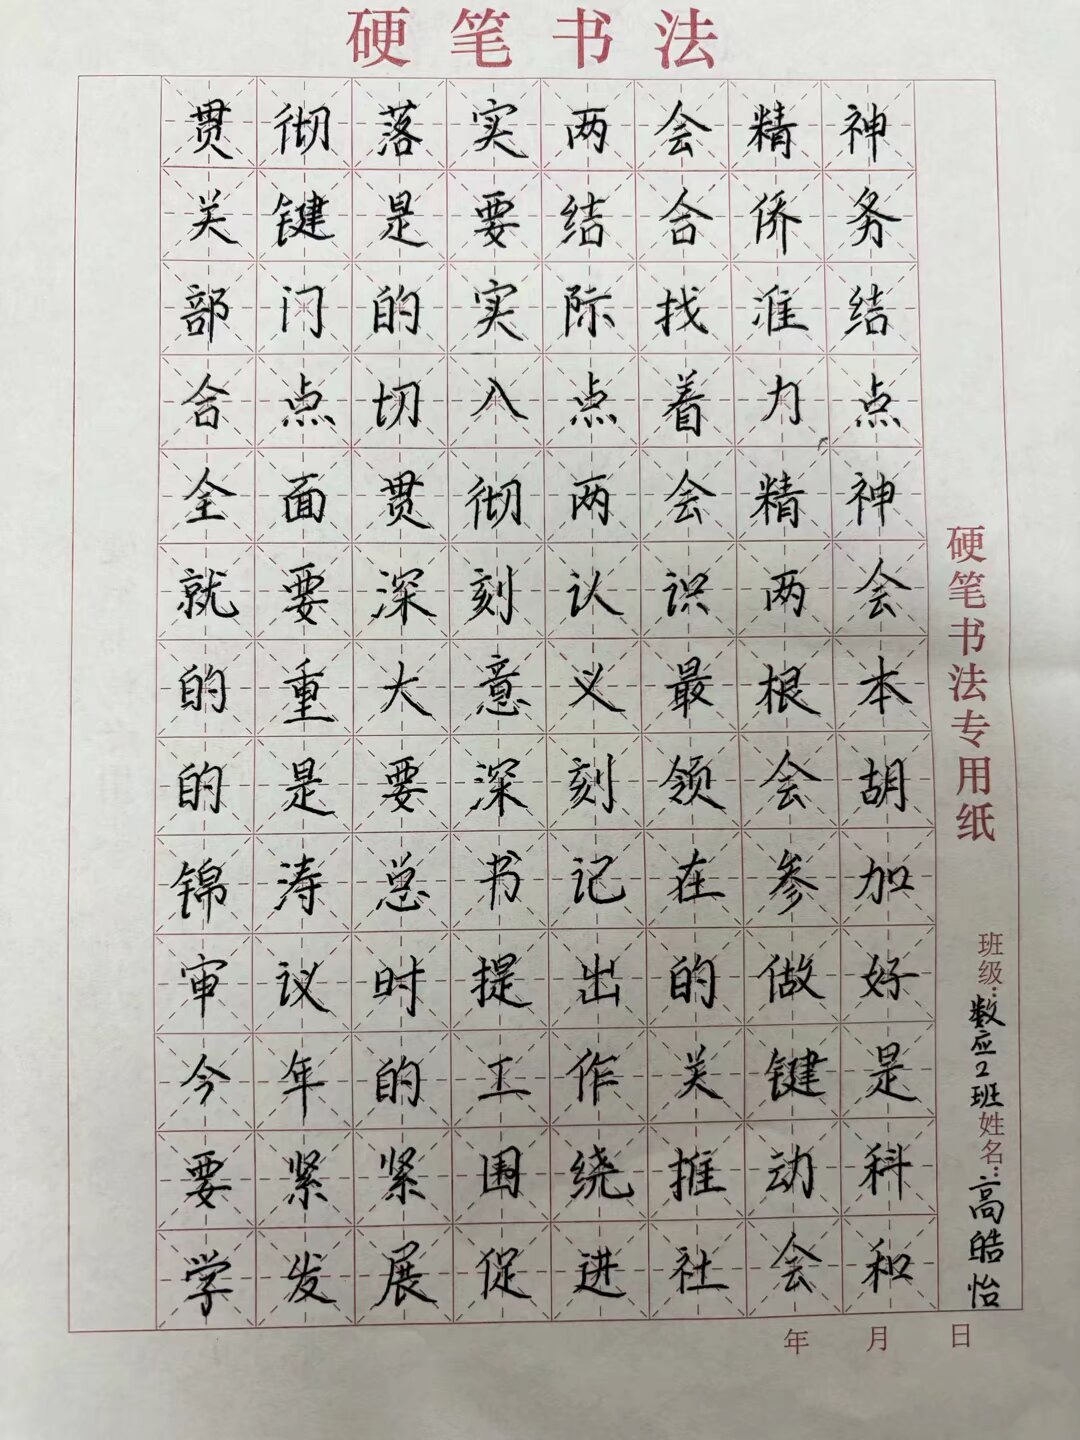 硬笔书法
贯彻落实两会精神
关键是要结合侨务
部门的实际找准结
合点切入点着力点
全面贯彻两会精神
就要深刻认识两会
的重大意义最根本
的是要深刻领会胡
锦涛总书记在参加
审议时提出的做好
今年的工作关键是
要紧紧围绕推动科
学发展促进社会和
硬笔书法专用纸
班级:数应2班姓名:高皓怡
年 月 日